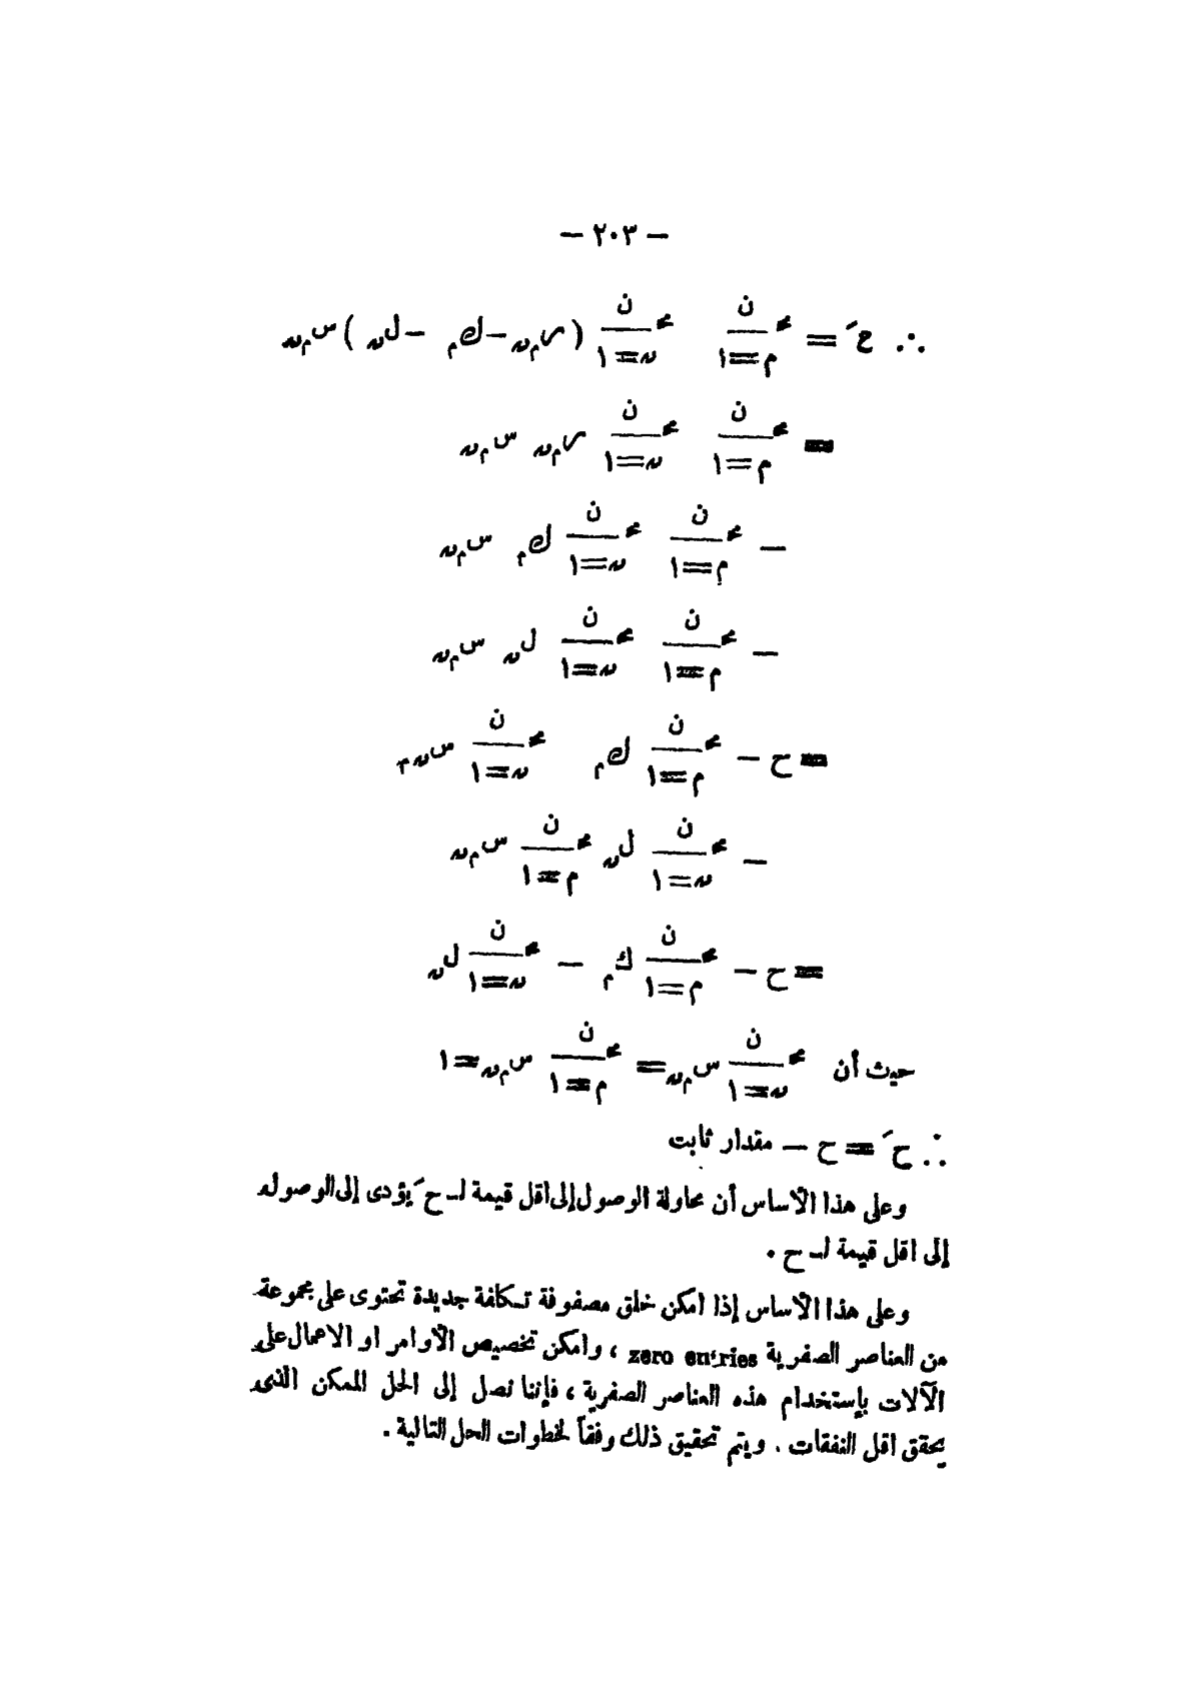 — ٢٠٣ —
∴ حَ = مجـ ن / م=١ مجـ ن / ں=١ ( ر م ں − ك م − ل ں ) س م ں
= مجـ ن / م=١ مجـ ن / ں=١ ر م ں س م ں
− مجـ ن / م=١ مجـ ن / ں=١ ك م س م ں
− مجـ ن / م=١ مجـ ن / ں=١ ل ں س م ں
= ح − مجـ ن / م=١ ك م مجـ ن / ں=١ س
− مجـ ن / ں=١ ل ں مجـ ن / م=١ س م ں
= ح − مجـ ن / م=١ ك م − مجـ ن / ں=١ ل ں
حيث أن مجـ ن / ں=١ س م ں = مجـ ن / م=١ س م ں = ١
∴ حَ = ح − مقدار ثابت
وعلى هذا الأساس أن محاولة الوصول إلى اقل قيمة لـ حَ يؤدى إلى الوصول
إلى اقل قيمة لـ ح .
وعلى هذا الأساس إذا امكن خلق مصفوفة تكلفة جديدة تحتوى على مجموعة
من العناصر الصفرية zero entries ، وامكن تخصيص الأوامر او الاعمال على
الآلات بإستخدام هذه العناصر الصفرية ، فإننا نصل إلى الحل الممكن الذى
يحقق اقل النفقات . ويتم تحقيق ذلك وفقاً لخطوات الحل التالية .